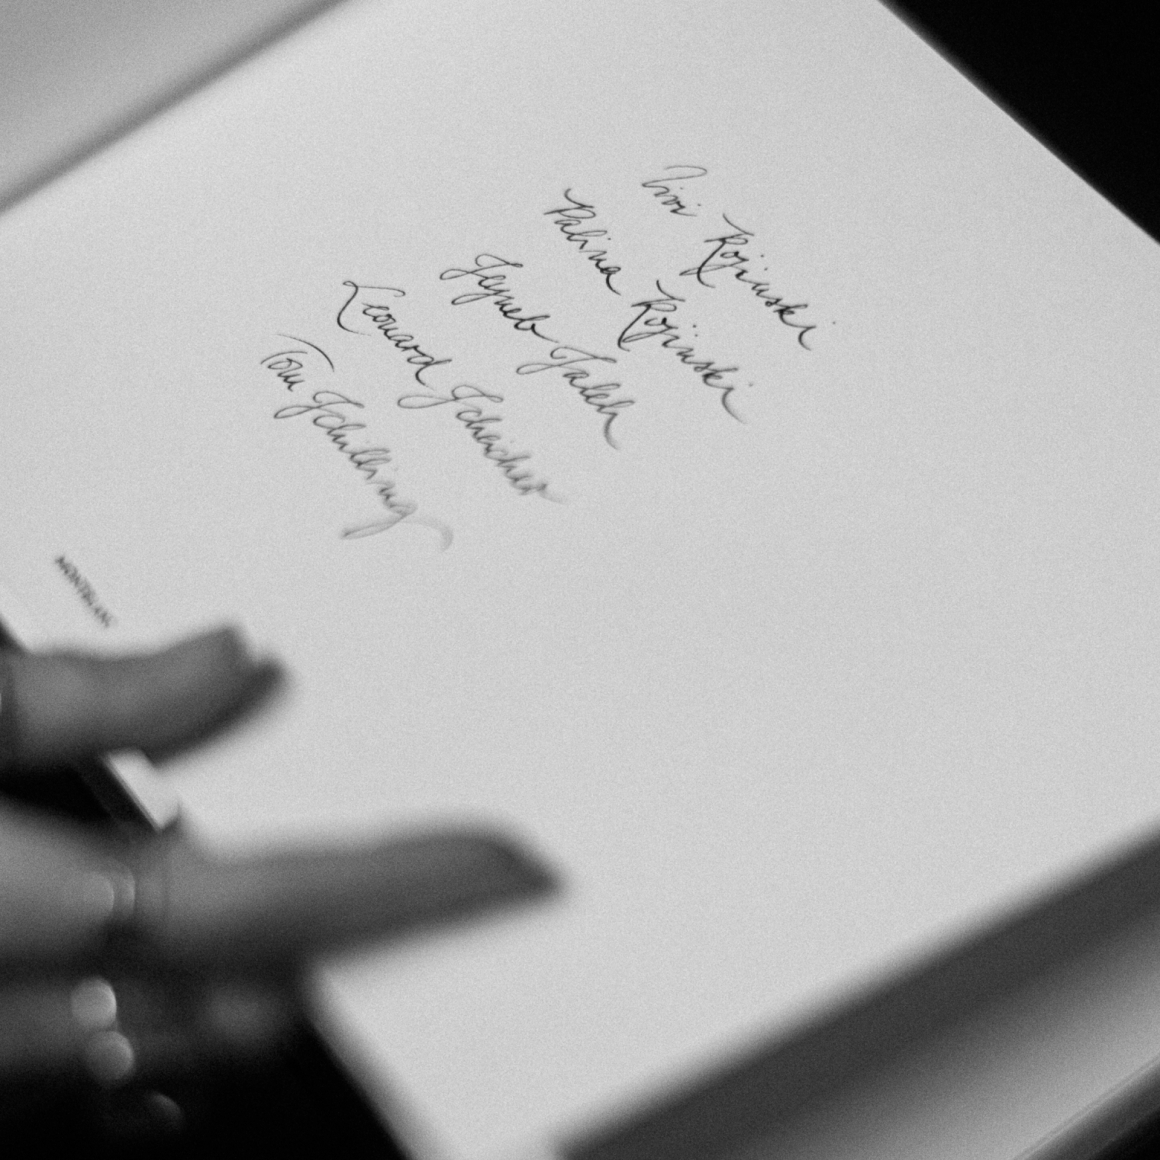 Vivi Rojinski
Palina Rojinski
Zeyneb Saleh
Leonard Scheicher
Tom Schilling
MONTBLANC